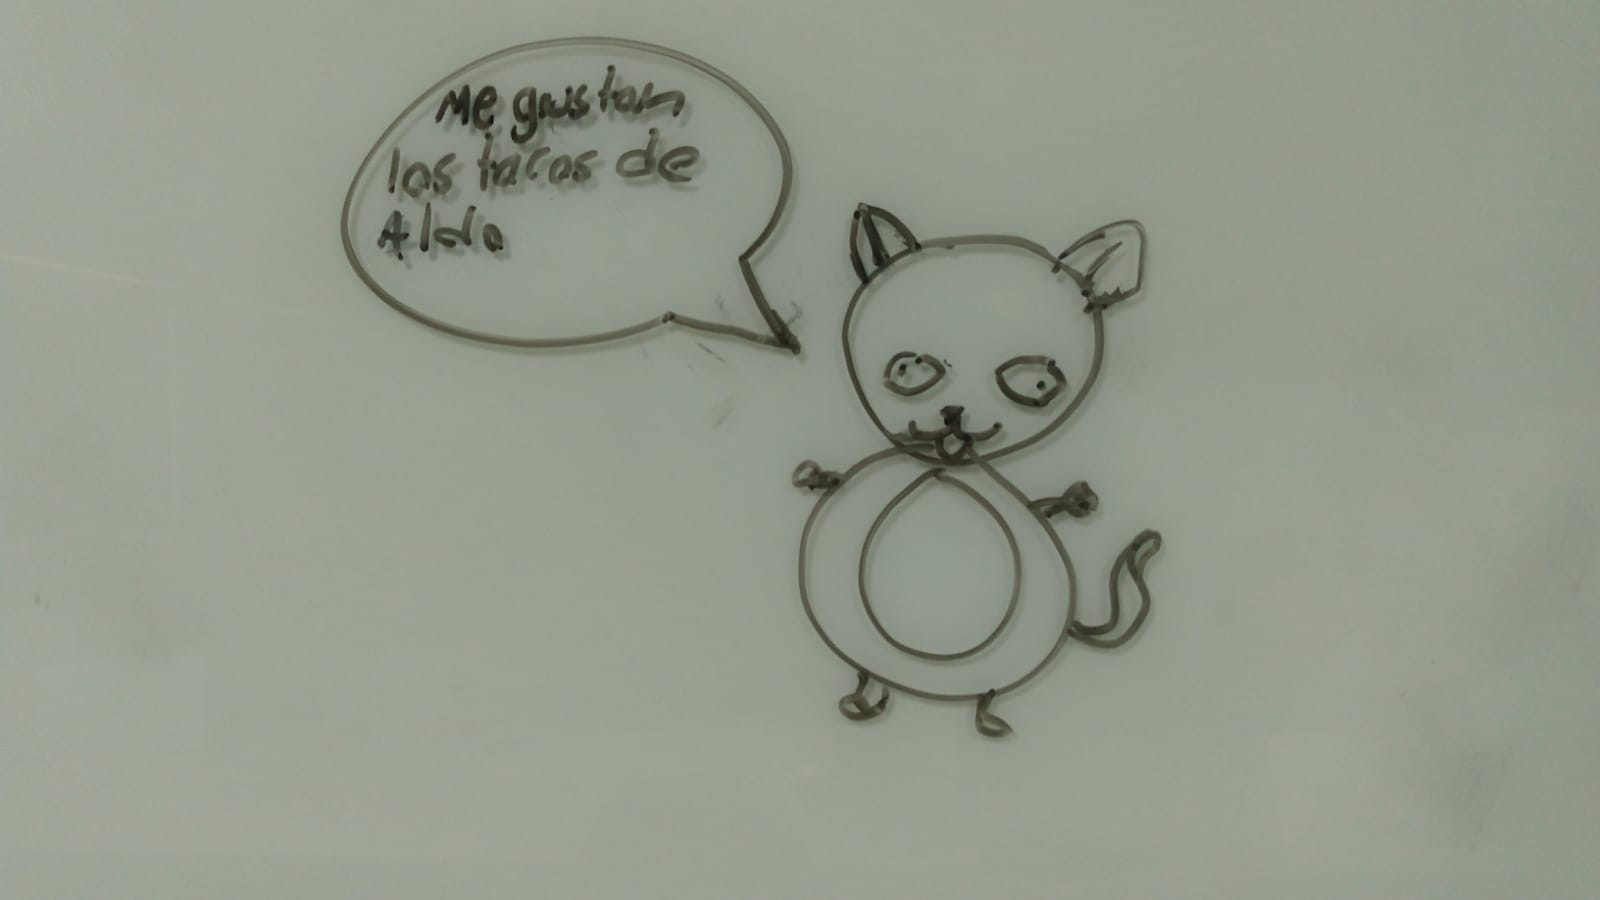 Me gustan
los tacos de
Aldo